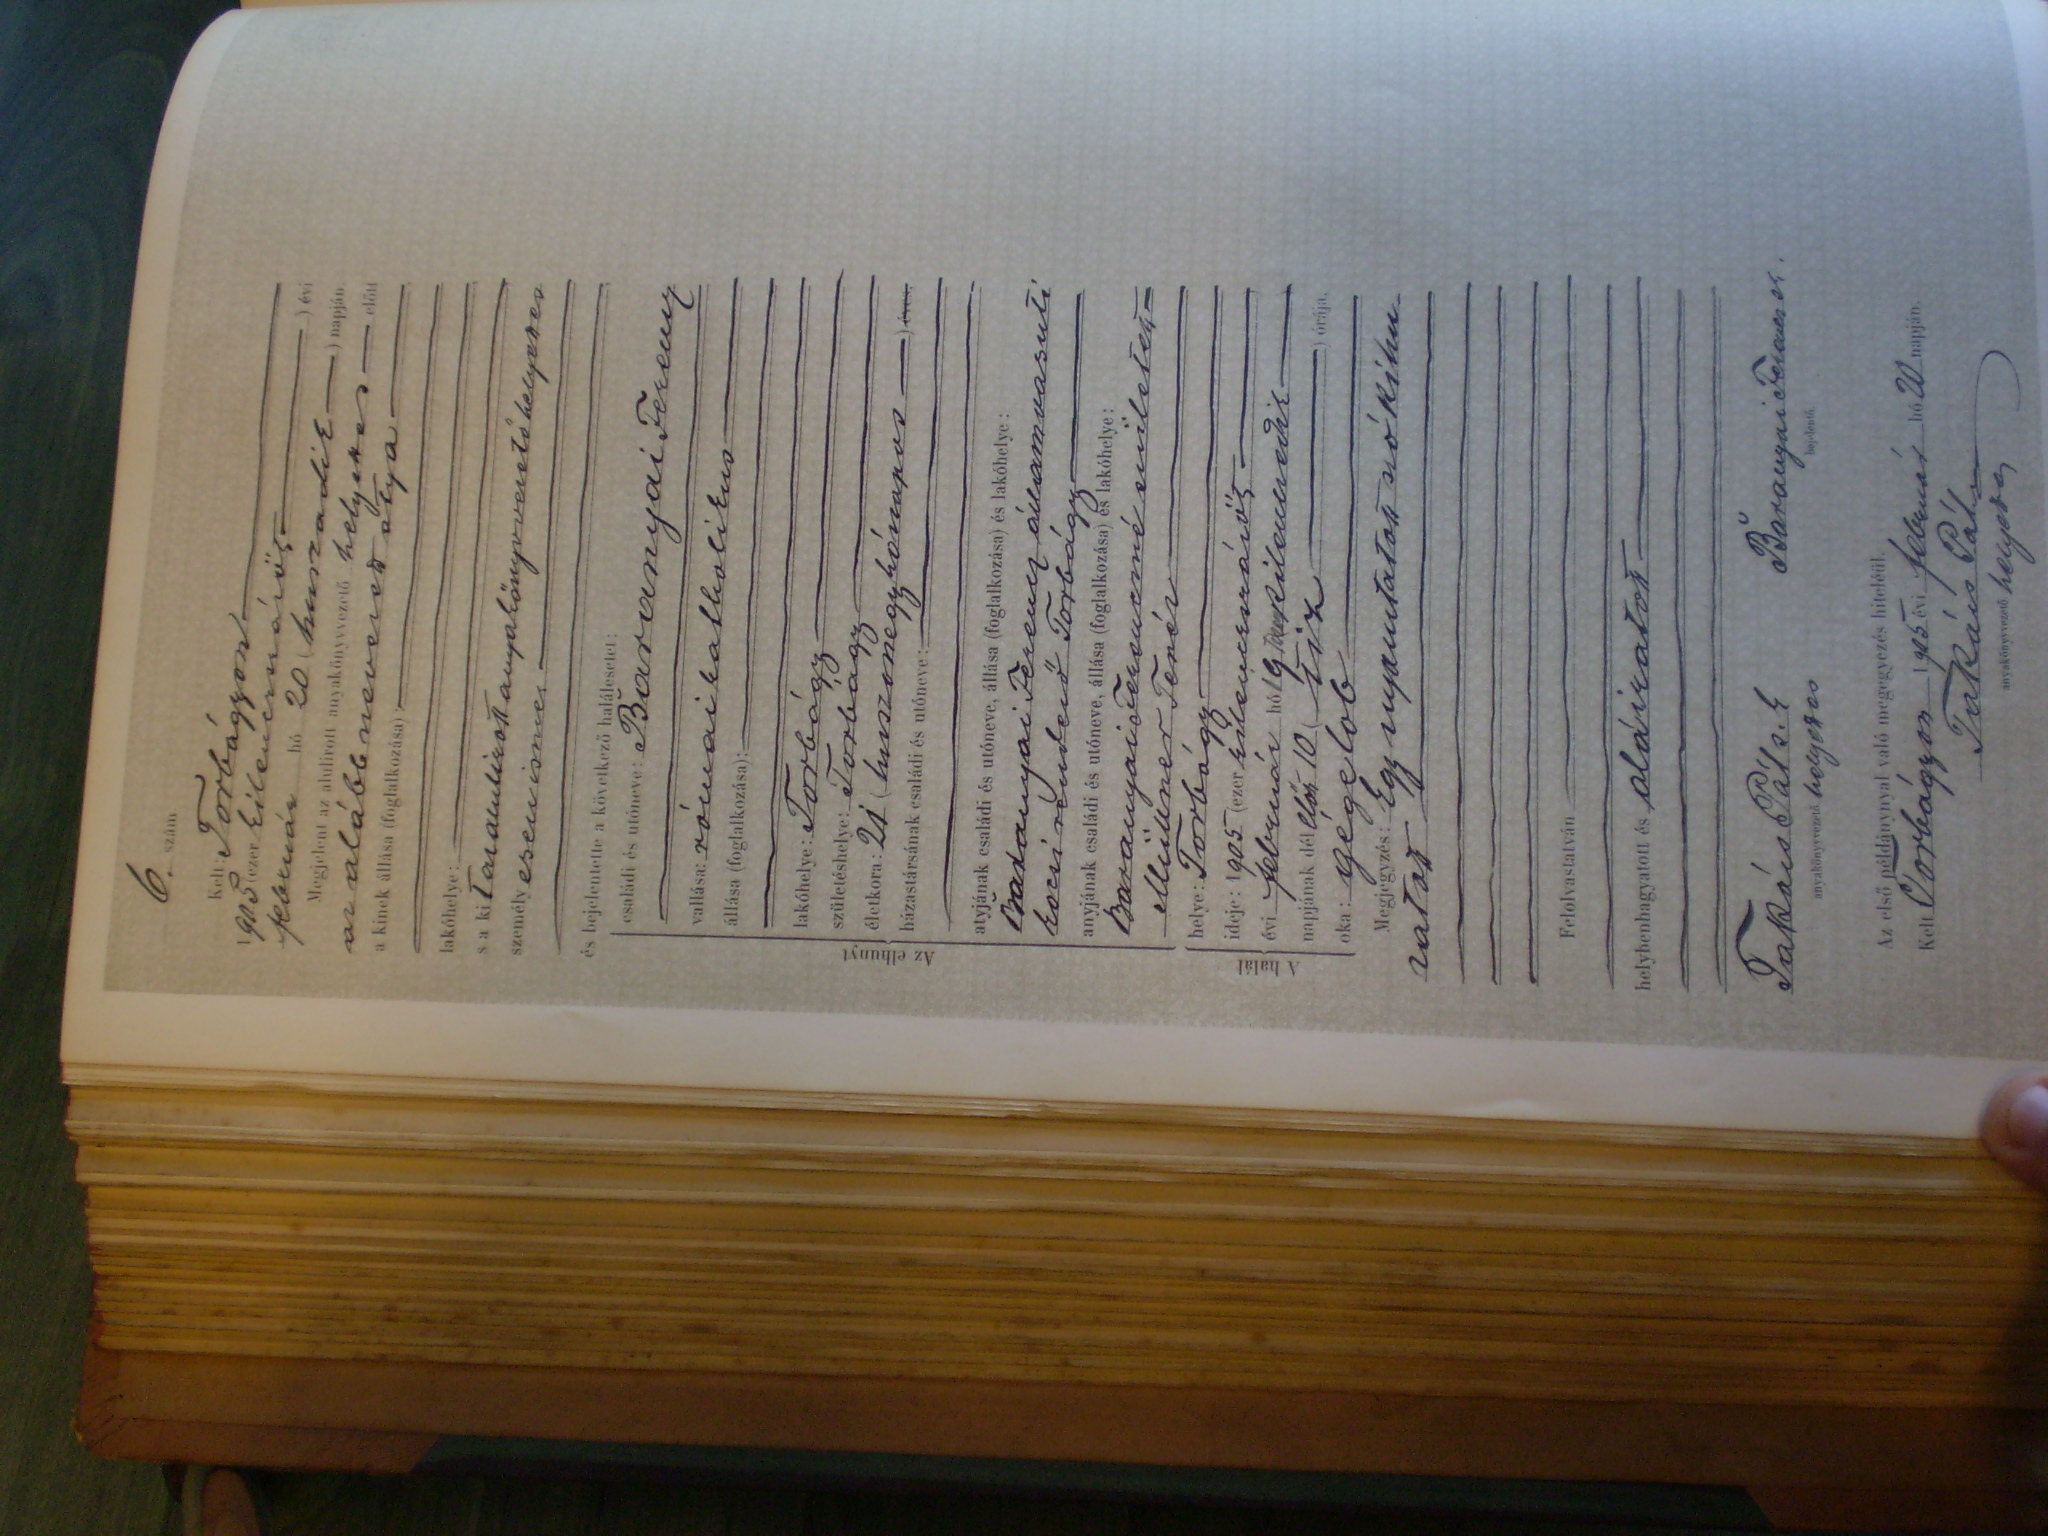 6. szám
Kelt: Torbágyon
1905 (ezer kilencszázöt) évi
február hó 20 (huszadik) napján.
Megjelent az alulirott anyakönyvvezető helyettes előtt
az alább nevezett atya
a kinek állása (foglalkozása):
lakóhelye:
s a ki Tanusitott anyakönyvvezető helyettes
személyesen ismer
és bejelentette a következő halálesetet:
Az elhunyt
családi és utóneve: Baranyai Ferenc
vallása: római katholikus
állása (foglalkozása):
lakóhelye: Torbágy
születéshelye: Torbágy
életkora: 21 (huszonegy hónapos) éves.
házastársának családi és utóneve:
atyjának családi és utóneve, állása (foglalkozása) és lakóhelye:
Baranyai Ferenc államvasuti
kocsirendező Torbágy
anyjának családi és utóneve, állása (foglalkozása) és lakóhelye:
Baranyai Ferencné született
Müllner Teréz
A halál
helye: Torbágy
ideje: 1905 (ezer kilencszázöt
évi február hó 19 kilencedik
napjának dél előtt 10 (tíz) órája.
oka: végelob
Megjegyzés: Egy nyomtatott szó kihu
zatott
Felolvastatván
helybenhagyatott és aláiratott
Takáts Pál s. k Baranyai Ferenc sr.
anyakönyvvezető helyettes bejelentő.
Az első példánynyal való megegyezés hiteléül.
Kelt Torbágyon 1905 évi február hó 20 napján.
Takáts Pál
anyakönyvvezető helyettes